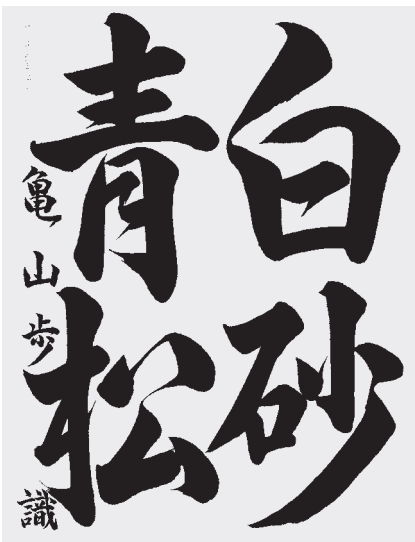 白砂
青松
亀山歩識